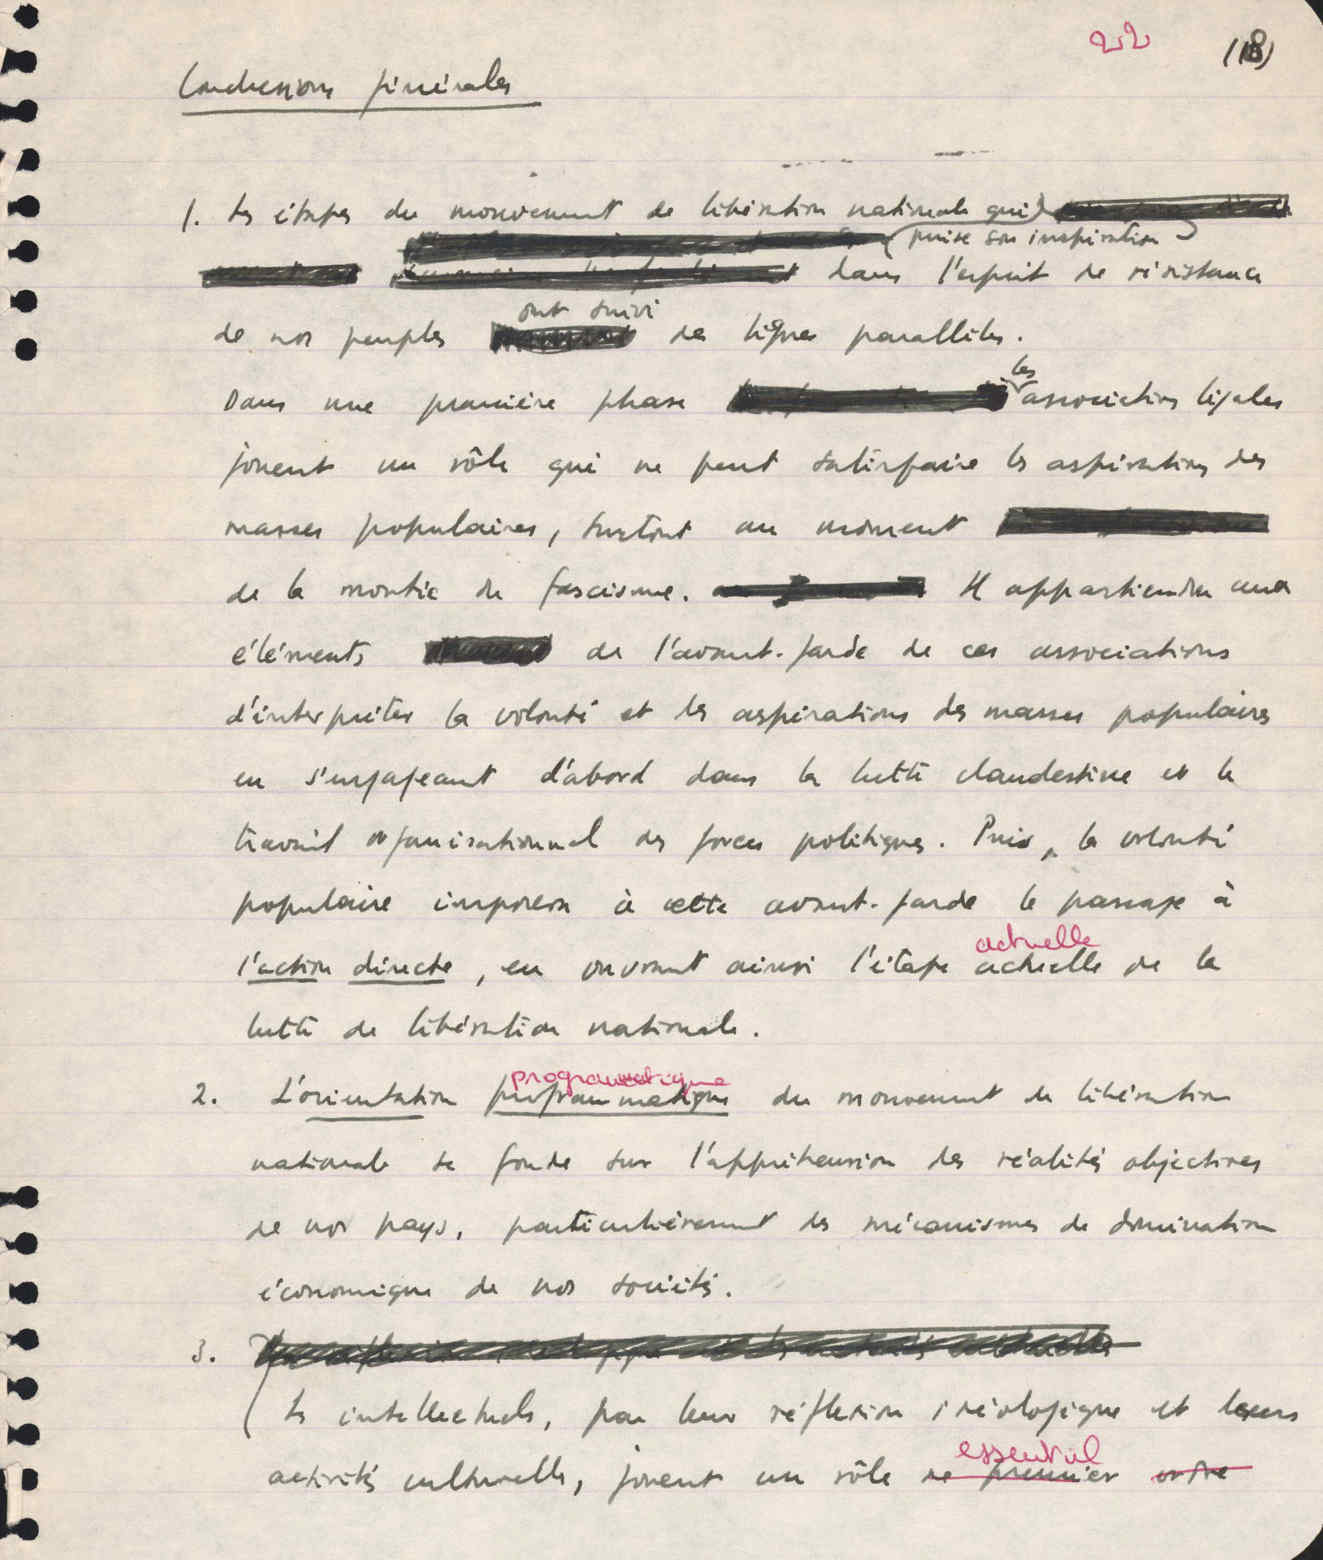 22 (18)
Conclusions générales
1. Les étapes du mouvement de libération nationale qui
puise son inspiration
dans l'esprit de résistance
ont suivi
de nos peuples des lignes parallèles.
les
Dans une première phase associations légales
jouent un rôle qui ne peut satisfaire les aspirations des
masses populaires, surtout au moment
de la montée du fascisme. Il appartiendra aux
éléments de l'avant-garde de ces associations
d'interpréter la volonté et les aspirations des masses populaires
en s'engageant d'abord dans la lutte clandestine et le
travail organisationnel des forces politiques. Puis, la volonté
populaire imposera à cette avant-garde le passage à
actuelle
l'action directe, en ouvrant ainsi l'étape actuelle de la
lutte de libération nationale.
programmatique
2. L'orientation programmatique du mouvement de libération
nationale se fonde sur l'appréhension des réalités objectives
de nos pays, particulièrement des mécanismes de domination
économique de nos sociétés.
3.
Les intellectuels, par leur réflexion idéologique et leurs
essentiel
activités culturelles, jouent un rôle de premier ordre